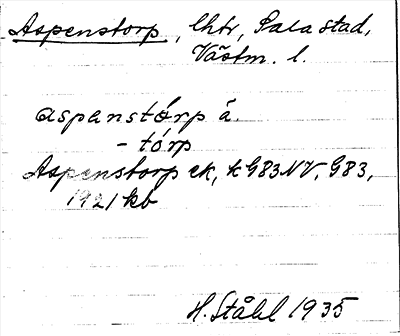 Aspenstorp, lhtr, Sala stad,
Västm. l.
aspenstórp å
- tórp
Aspenstorp ek, k G83NV, G83,
1921 kb
H. Ståhl 1935